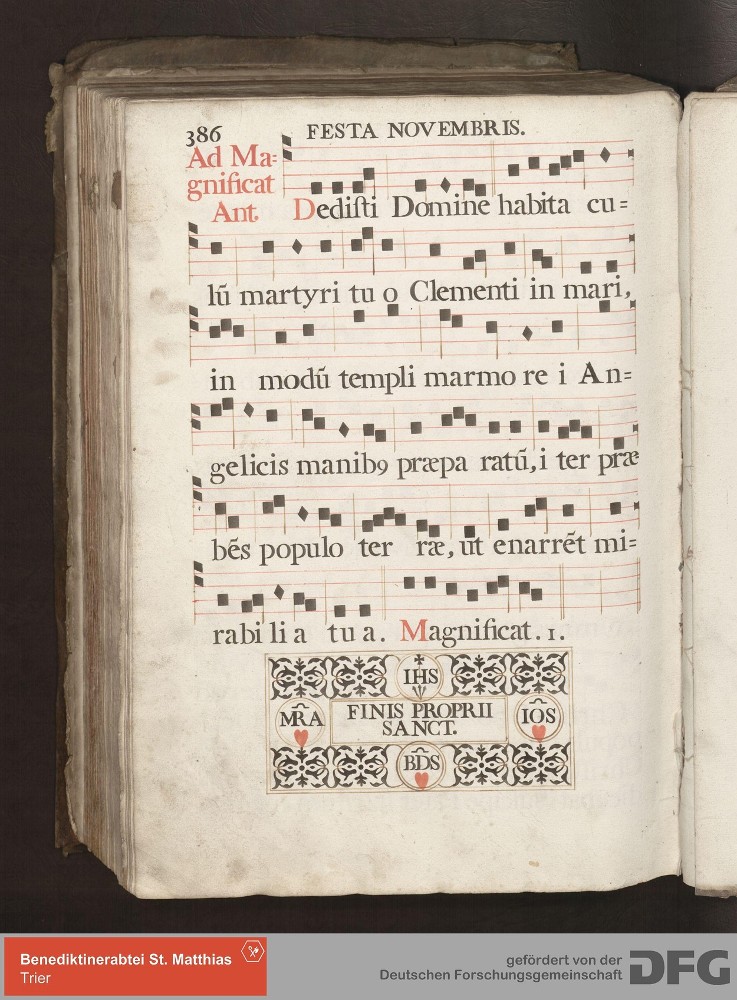 386 FESTA NOVEMBRIS.
Ad Ma=
gnificat
Ant. Dedisti Domine habita cu=
lū martyri tu o Clementi in mari,
in modū templi marmo re i An=
gelicis manib9 præpa ratū, i ter præ
bēs populo ter ræ, ut enarrēt mi=
rabi li a tu a. Magnificat. 1.
IHS
MR̄A FINIS PROPRII IŌS
SANCT.
BD̄S
Benediktinerabtei St. Matthias
Trier
gefördert von der
Deutschen Forschungsgemeinschaft DFG